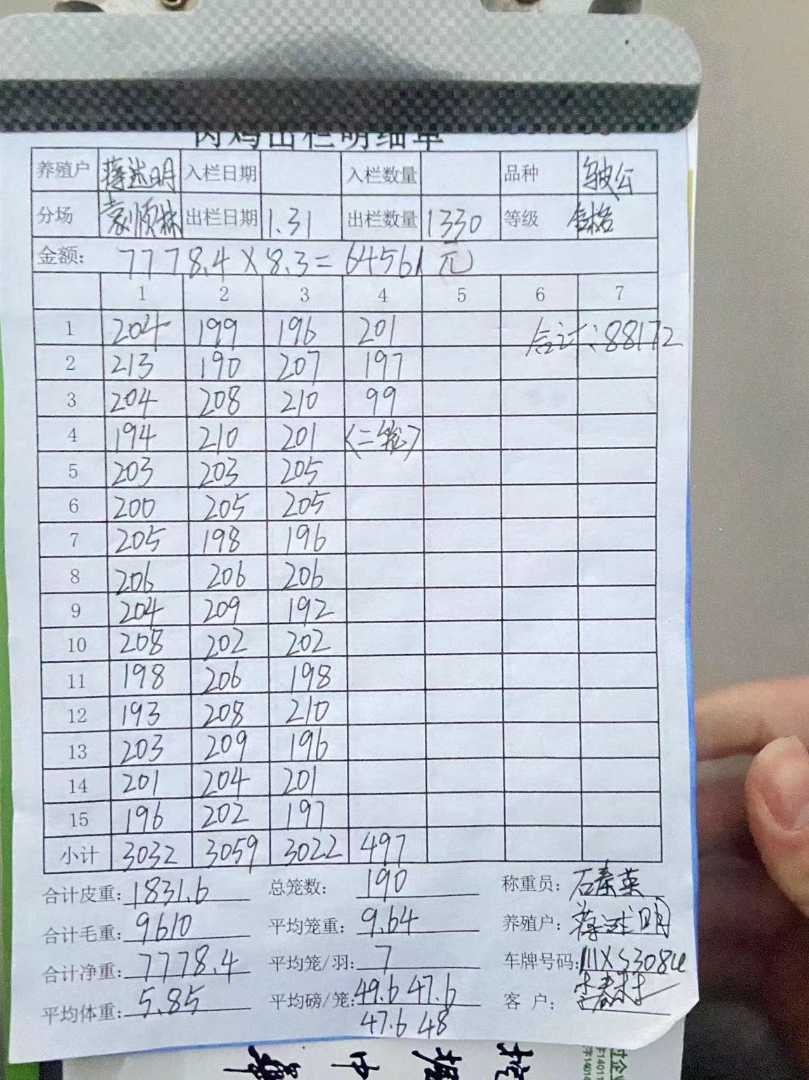 肉鸡出栏明细单
养殖户 蒋述明 入栏日期 入栏数量 品种
分场 出栏日期 1.31 出栏数量 1330 等级 合格
金额: 7778.4×8.3=64561元
1 2 3 4 5 6 7
1 204 199 196 201 合计:88172
2 213 190 207 197
3 204 208 210 99
4 194 210 201 (二轮)
5 203 203 205
6 200 205 205
7 205 198 196
8 206 206 206
9 204 209 192
10 208 202 202
11 198 206 198
12 193 208 210
13 203 209 196
14 201 204 201
15 196 202 197
小计 3032 3059 3022 497
合计皮重: 1831.6 总笼数: 190 称重员:
合计毛重: 9610 平均笼重: 9.64 养殖户: 蒋述明
合计净重: 7778.4 平均笼/羽: 7 车牌号码:
平均体重: 5.85 平均磅/笼: 49.6 47.6 客户:
47.6 48